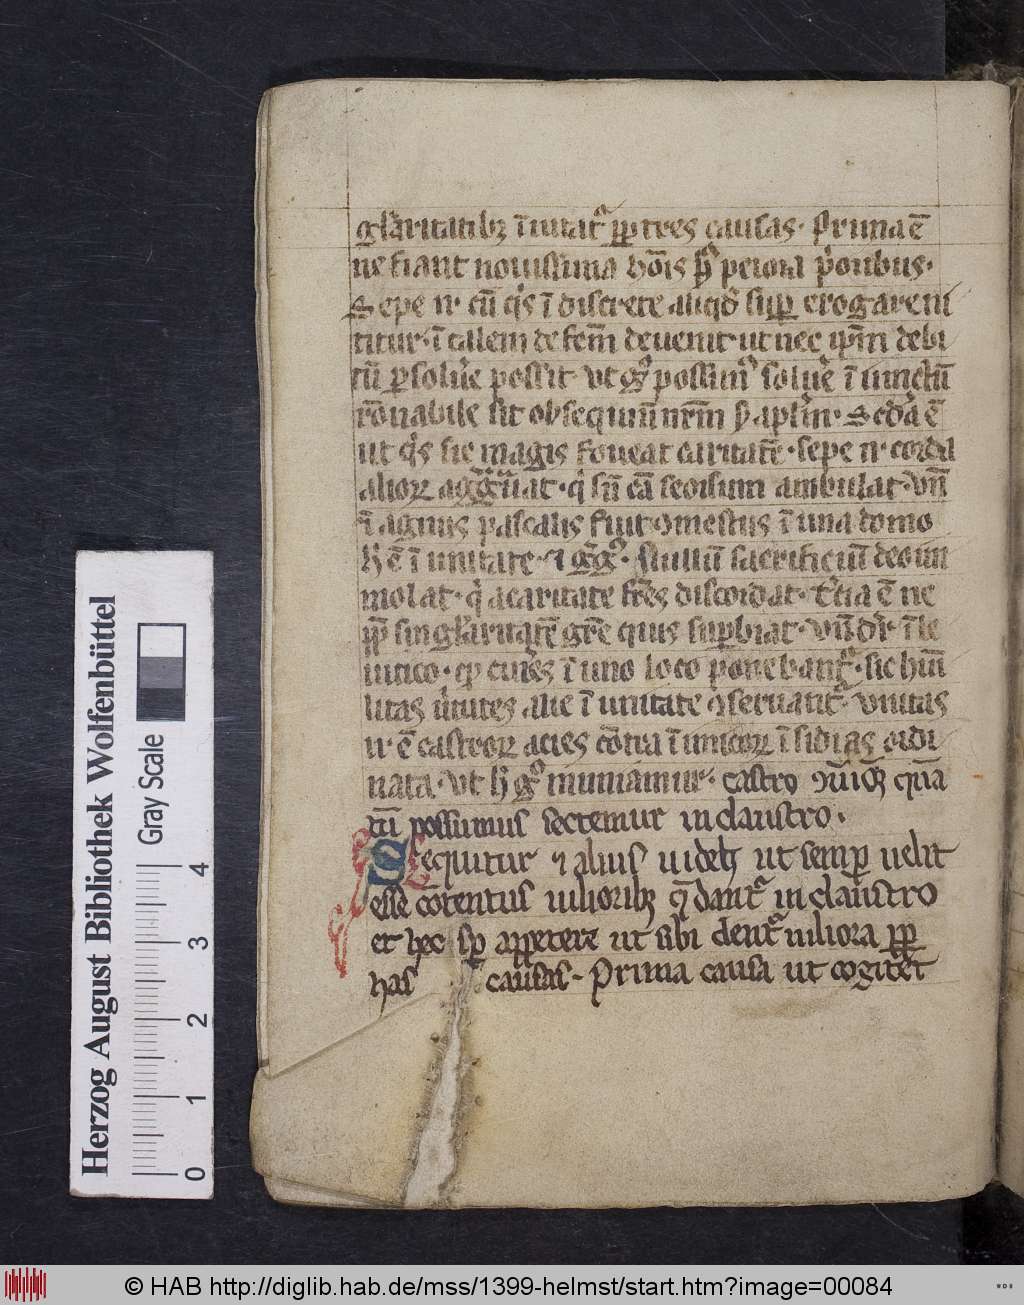 gl̄aritatibꝫ ī iutat᷑ ꝓpt tres causas. Prima ē
ne fiant nouissima hōis peiora p̄oribus.
Sepe n̄ cū q̇s ī discrete aliqd̄ suꝑ erogare ni
titur. ī talem defem̄ deuenit ut nec ip̄m debi
tū ꝑsoluͤe possit vt possimꝰ soluͤe ī iunctū
rōnabile sit obsequiū nr̄m Scd̄a ē
ut q̇s sic magis foueat caritatē. sepe n̄ corda
alioꝝ agg̃uat. q̇ seorsum ambulat. vn̄
ꞇ̄ agnus pascalis fuit ꝯmestus ī una domo
h̄ ē ī unitate. ⁊ Nullū sacrificiū deo im
molat. q̇ a caritate fr̄is discordat. t̄cia ē ne
singl̄aritatē quis suꝑbiat. vn̄ dr̄ ī le
uitico. ī uno loco ponebant᷑. sic hūi
litas alie ī unitate ꝯseruant᷑. vnitas
n̄ ē castroꝝ acies cōtra īimicoꝝ īsidias ordi
nata. vt h̄ gͦ muniamur. castro quā
tū possumus sectemur in claustro.
Sequitur ⁊ alius uidelꝫ ut semꝑ uelit
esse cōtentus uilioribꝫ q̄ dant᷑ in claustro
et hec sꝑ appetere ut sibi dent᷑ uiliora ꝓpt
has causas. Prima causa ut cogitet
Herzog August Bibliothek Wolfenbüttel
Gray Scale
0 1 2 3 4
© HAB http://diglib.hab.de/mss/1399-helmst/start.htm?image=00084